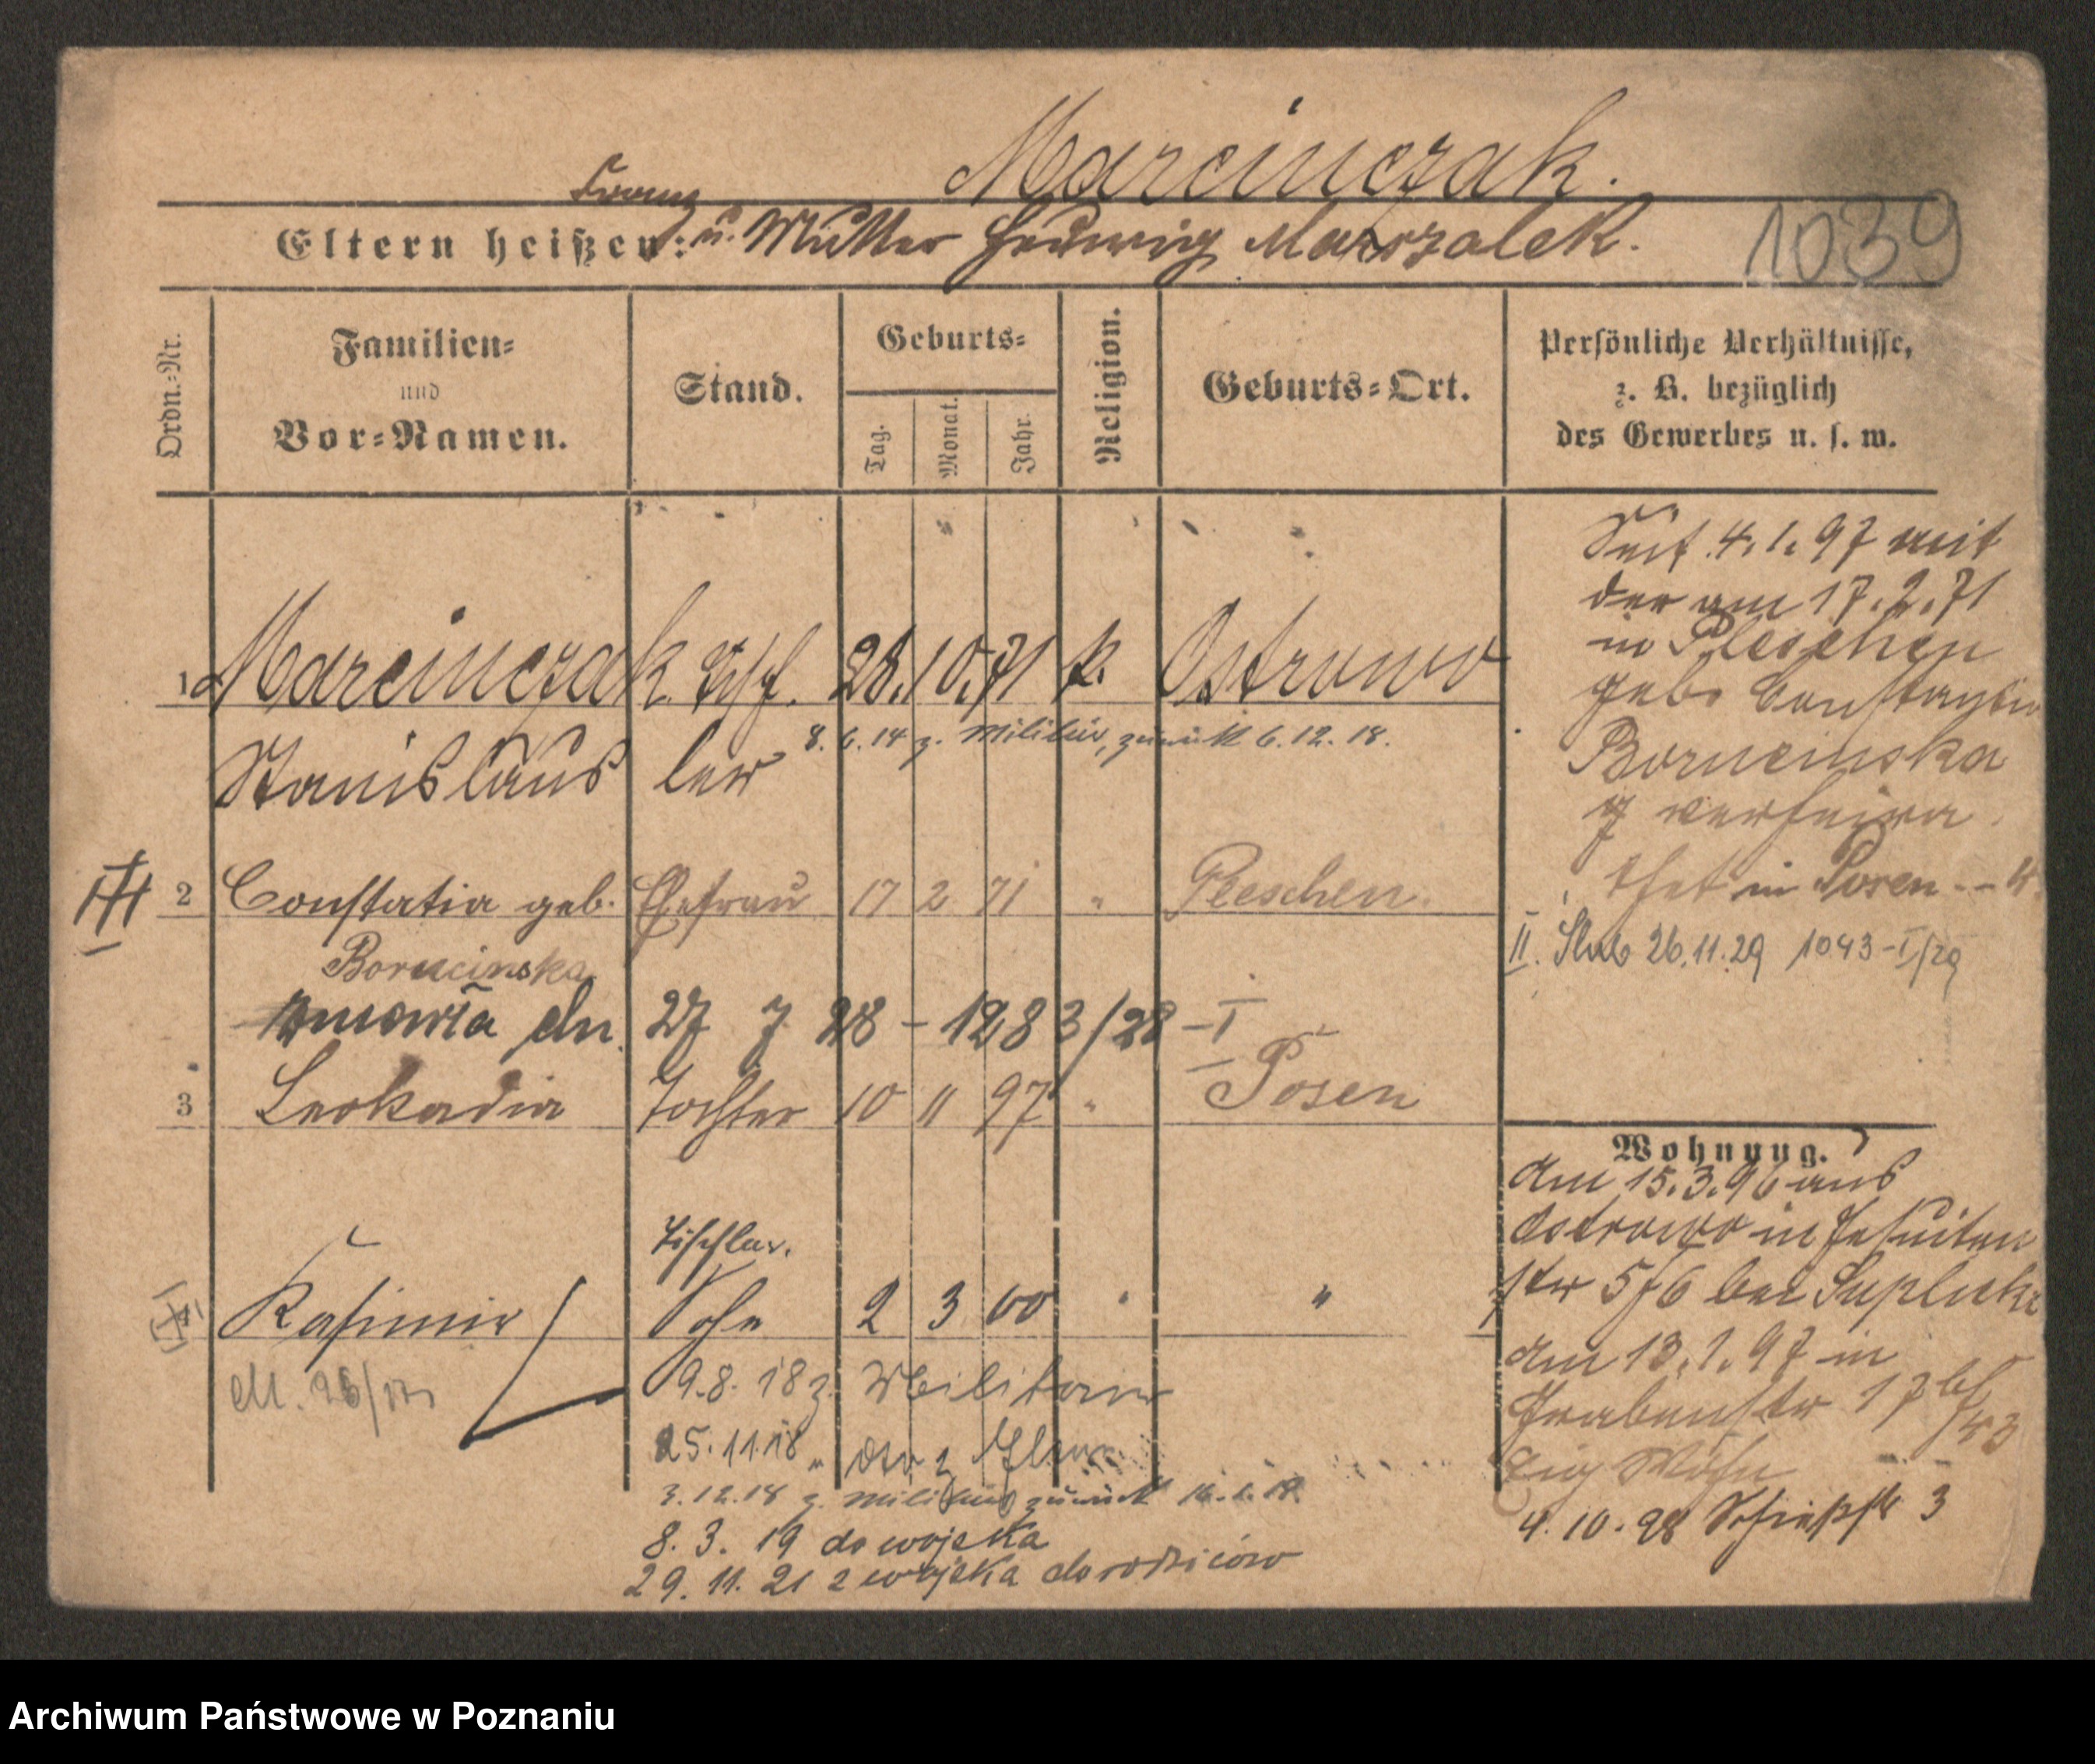 Marcinczak.
Franz
Eltern heißen: u. Mutter Hedwig Marszalek.
1039
Ordn.-Nr.
Familien-
und
Vor-Namen.
Stand.
Geburts-
Tag.
Monat.
Jahr.
Religion.
Geburts-Ort.
Persönliche Verhältnisse,
z. B. bezüglich
des Gewerbes u. s. w.
1 Marcinczak Tisch. 28. 10. 71 k. Ostrowo
Stanislaus ler
8. 6. 14 z. Militär, zurück 6. 12. 18.
2 Constatia geb. Ehefrau 17 2 71 " Pleschen.
Borucinska
zmarła dn. 27 7 28 - 1283/28 - I
3 Leokadia Tochter 10 11 97 " Posen
Tischler.
4 Kasimir Sohn 2 3 00 " "
9.8.18 z. Militär
25.11.18 "
3.12.18 z. Militär zurück
8. 3. 19 do wojska
29. 11. 21 z wojska do rodziców
Seit 4. 1. 97 mit
der am 17. 2. 71
in Pleschen
geb. Constantia
Borucinska
verheira
thet in Posen
II. Ślub 26.11.29 1043-I/29
Wohnung.
Am 15. 3. 96 aus
Ostrowo in Jesuiten
str 5/6 bei
Am 13. 1. 97 in
Grabenstr 17
4. 10. 98 Schießstr 3